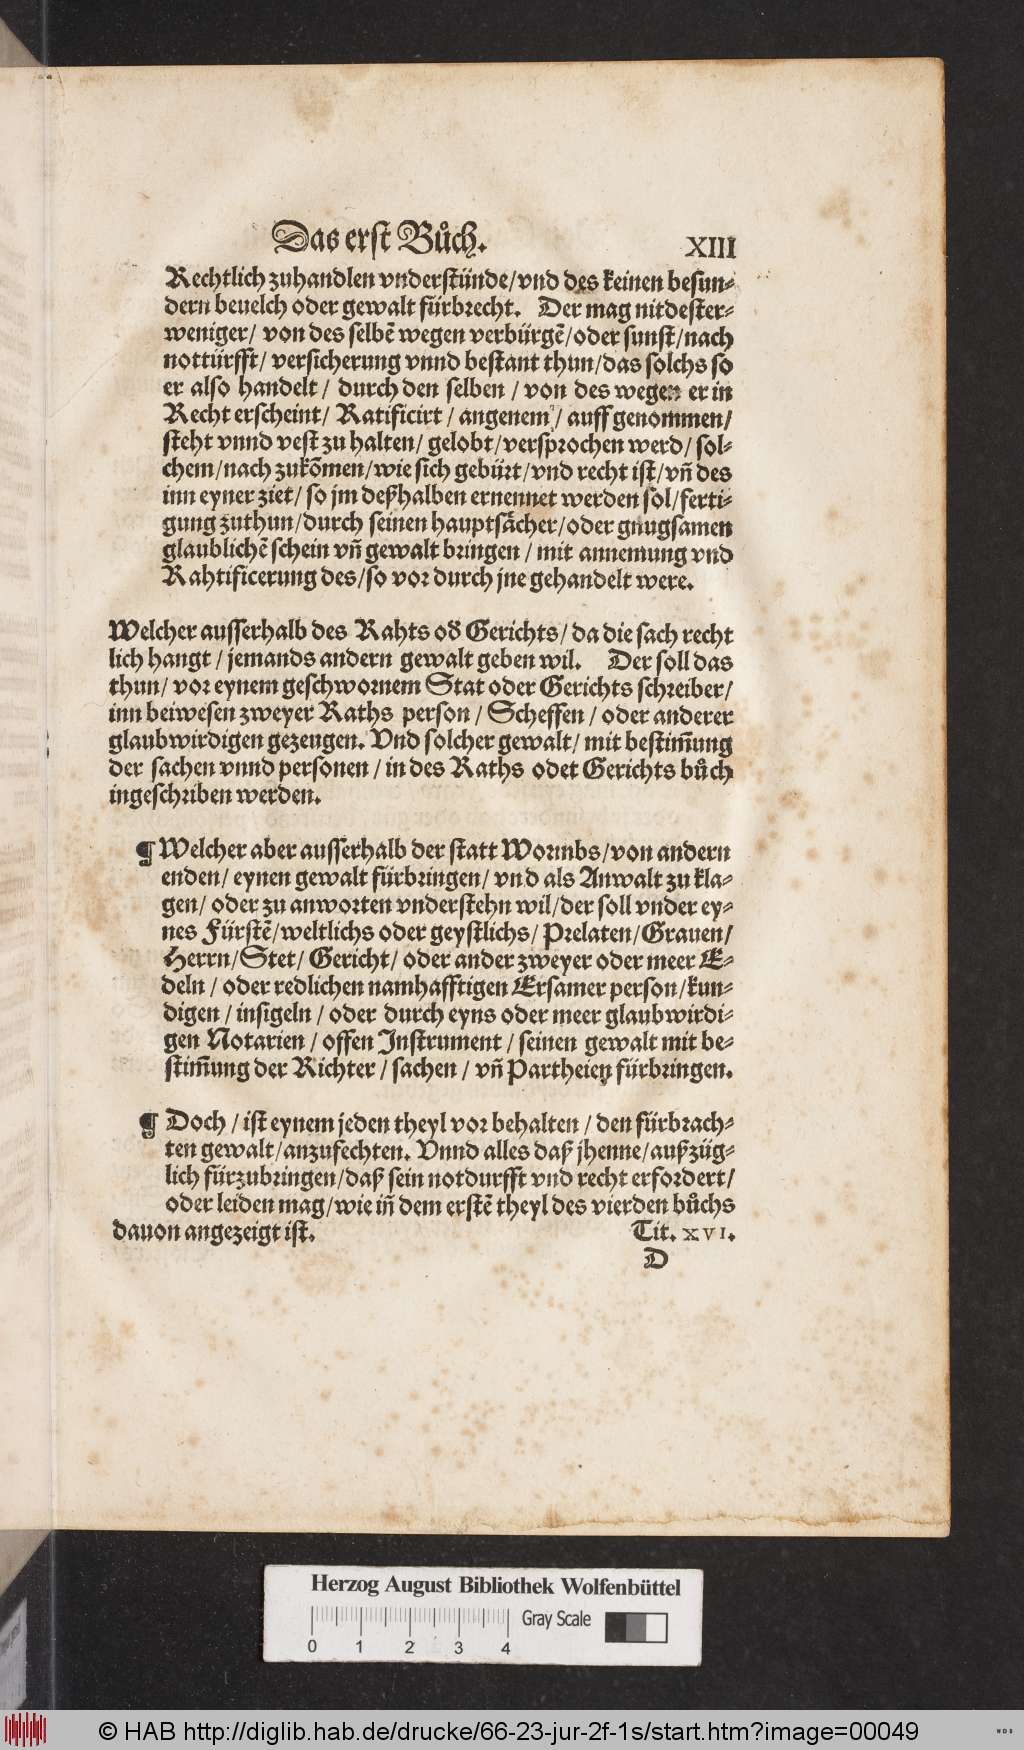 Das erst Bůch. XIII
Rechtlich zuhandlen vnderstünde/vnd des keinen besun-
dern beuelch oder gewalt fürbrecht. Der mag nitdester-
weniger/ von des selbē wegen verbürgē/oder sunst/nach
nottürfft/ versicherung vnnd bestant thun/das solchs so
er also handelt / durch den selben / von des wegen er in
Recht erscheint/ Ratificirt / angenem / auff genommen/
steht vnnd vest zu halten/ gelobt/versprochen werd/ sol-
chem/nach zukōmen/wie sich gebürt/vnd recht ist/vñ des
inn eyner ziet/ so jm deßhalben ernennet werden sol/ferti-
gung zuthun/durch seinen hauptsächer/oder gnugsamen
glaublichē schein vñ gewalt bringen / mit annemung vnd
Rahtificerung des/so vor durch jne gehandelt were.
Welcher ausserhalb des Rahts od Gerichts/ da die sach recht
lich hangt / jemands andern gewalt geben wil. Der soll das
thun/ vor eynem geschwornem Stat oder Gerichts schreiber/
inn beiwesen zweyer Raths person / Scheffen / oder anderer
glaubwirdigen gezeugen. Vnd solcher gewalt/ mit bestim̄ung
der sachen vnnd personen / in des Raths odet Gerichts bůch
ingeschriben werden.
¶ Welcher aber ausserhalb der statt Wormbs/von andern
enden/ eynen gewalt fürbringen/ vnd als Anwalt zu kla-
gen/ oder zu anworten vnderstehn wil/der soll vnder ey-
nes Fürstē/weltlichs oder geystlichs/ Prelaten/Grauen/
Herrn/Stet/ Gericht/ oder ander zweyer oder meer E-
deln / oder redlichen namhafftigen Ersamer person/kun-
digen / insigeln / oder durch eyns oder meer glaubwirdi-
gen Notarien / offen Instrument / seinen gewalt mit be-
stim̄ung der Richter / sachen / vñ Partheien fürbringen.
¶ Doch / ist eynem jeden theyl vor behalten / den fürbrach-
ten gewalt/anzufechten. Vnnd alles daß jhenne/außzüg-
lich fürzubringen/daß sein notdurfft vnd recht erfordert/
oder leiden mag/wie iñ dem erstē theyl des vierden bůchs
dauon angezeigt ist. Tit. XVI.
D
Herzog August Bibliothek Wolfenbüttel
0 1 2 3 4 Gray Scale
© HAB http://diglib.hab.de/drucke/66-23-jur-2f-1s/start.htm?image=00049